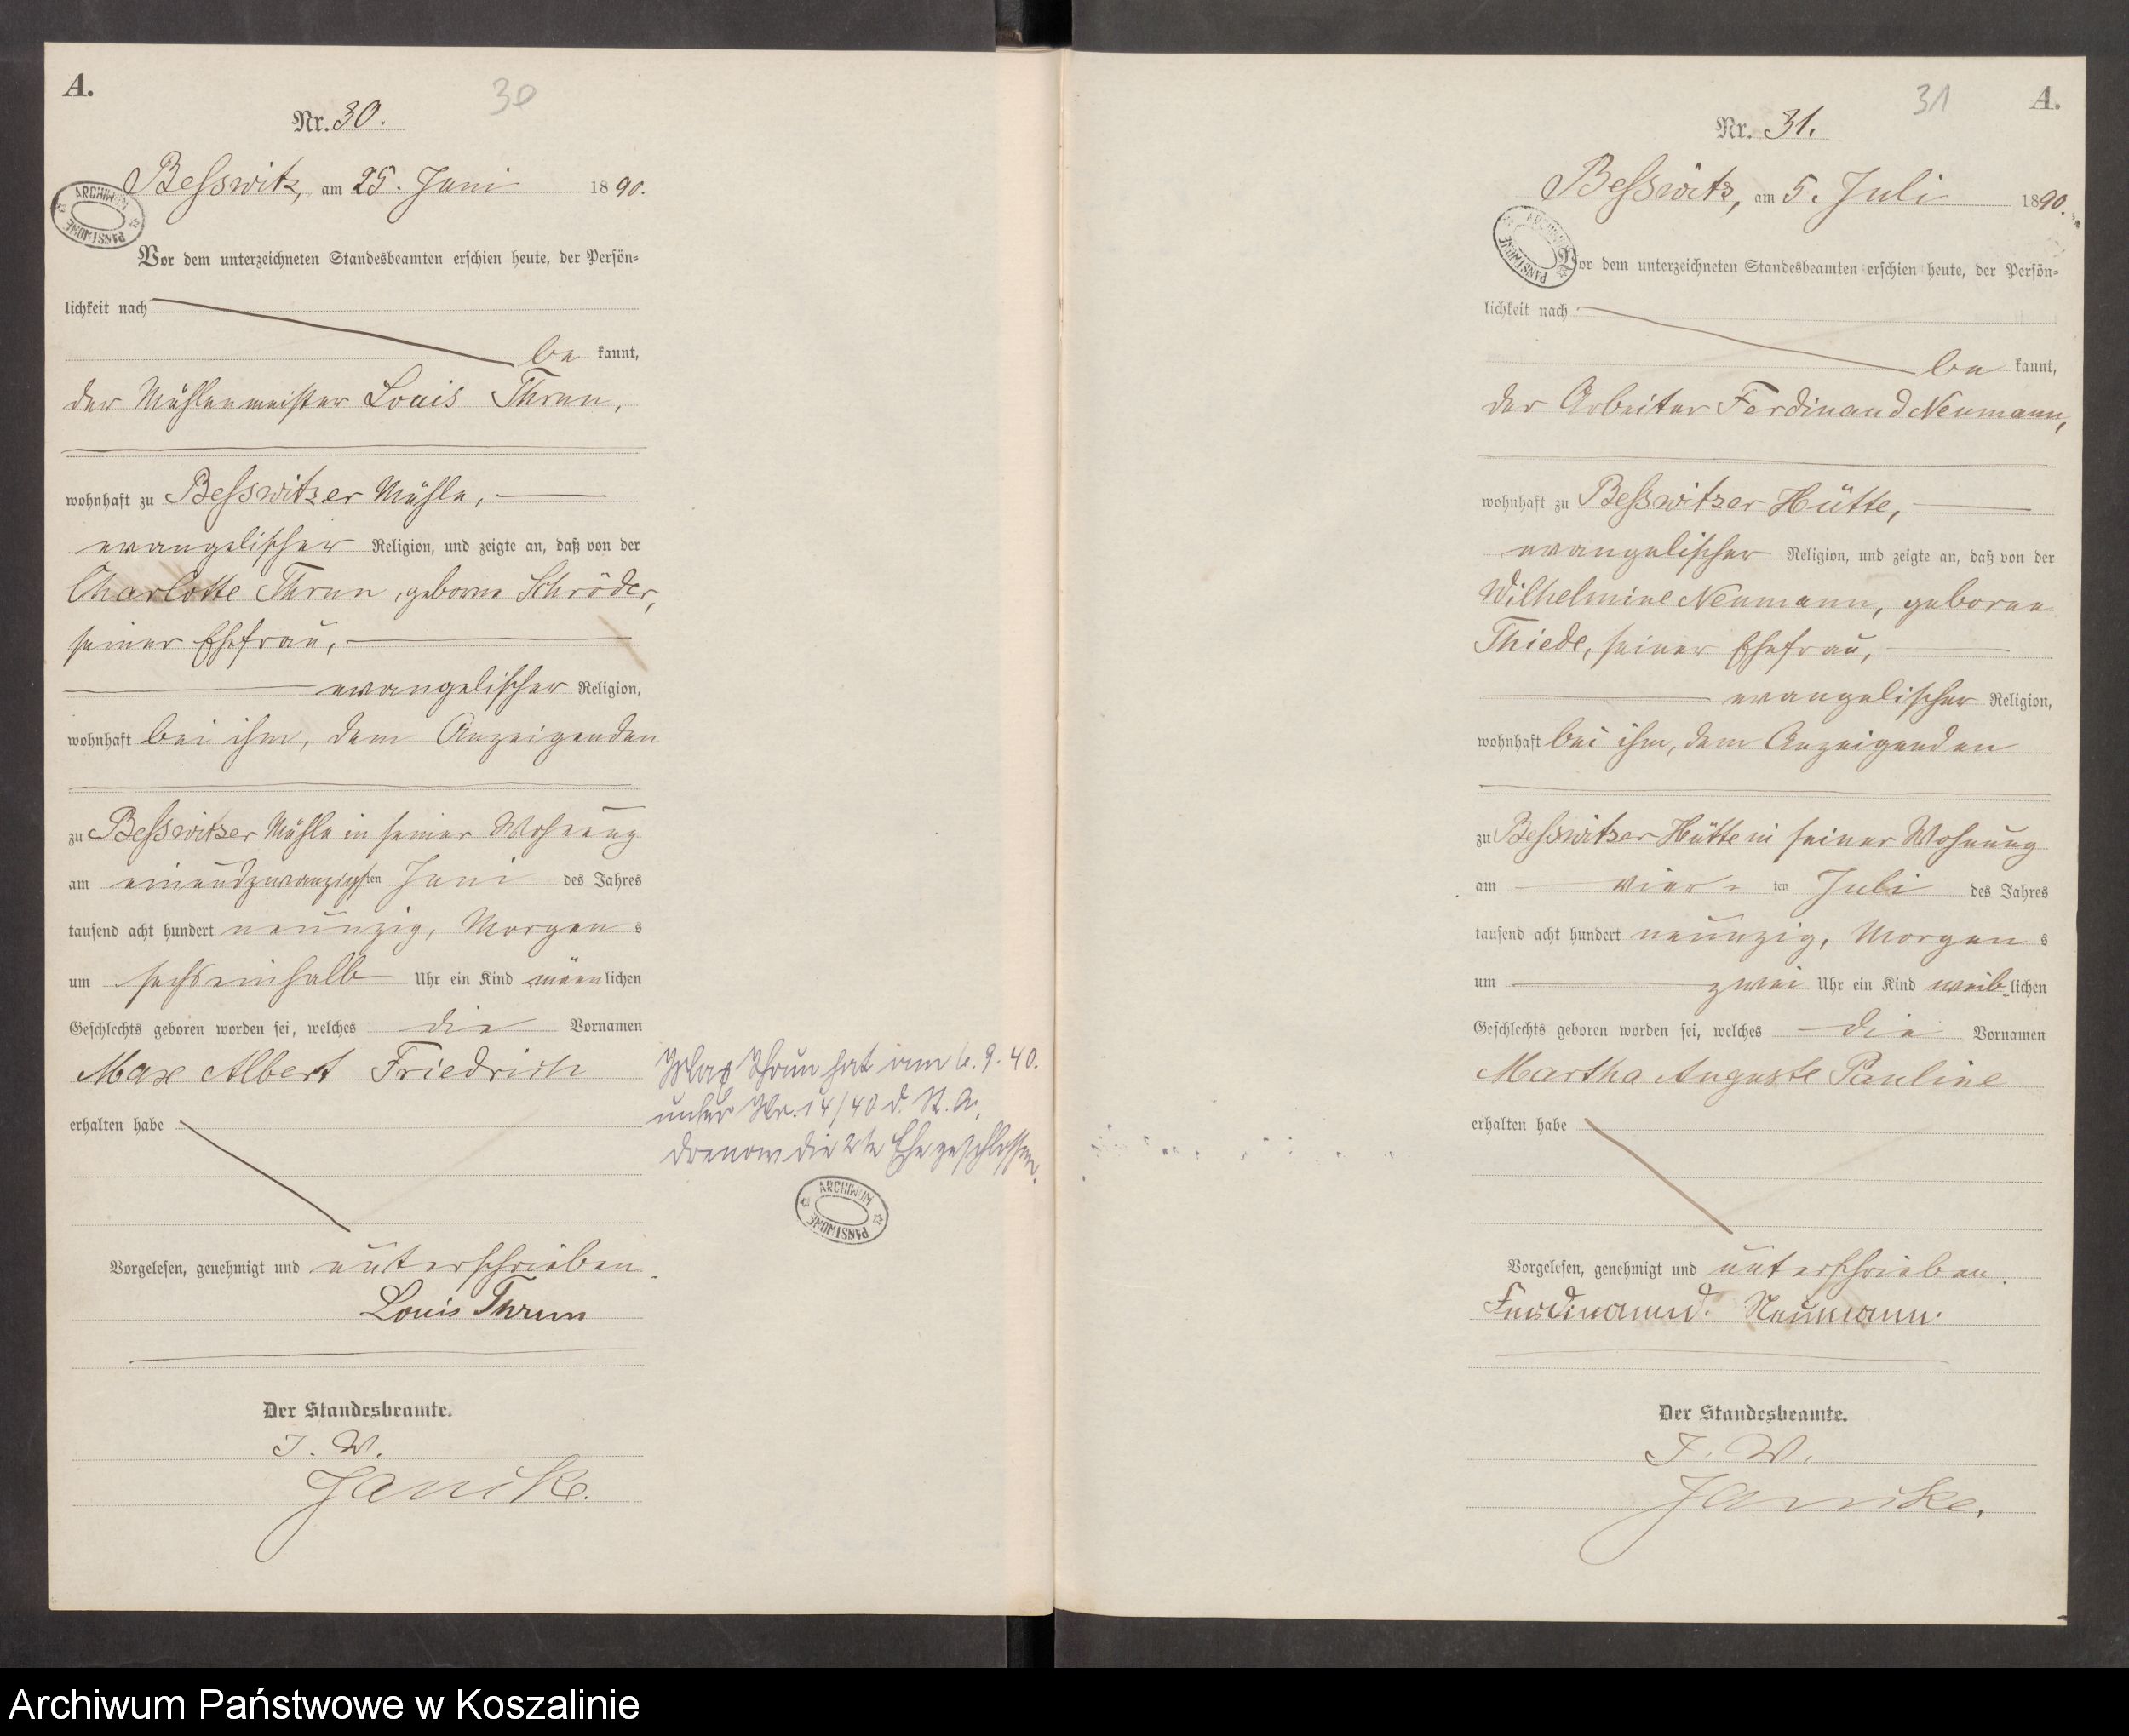 A.
30
Nr. 30.
Beſswitz, am 25. Juni 1890.
ARCHIWUM PAŃSTWOWE
Vor dem unterzeichneten Standesbeamten erschien heute, der Persön-
lichkeit nach
be kannt,
der Mühlenmeister Louis Thrun,
wohnhaft zu Beſswitzer Mühle,
evangelischer Religion, und zeigte an, daß von der
Charlotte Thrun, geborne Schröder,
seiner Ehefrau,
evangelischer Religion,
wohnhaft bei ihm, dem Anzeigenden
zu Beſswitzer Mühle in seiner Wohnung
am einundzwanzigsten Juni des Jahres
tausend acht hundert neunzig, Morgens
um sechseinhalb Uhr ein Kind männlichen
Geschlechts geboren worden sei, welches die Vornamen
Max Albert Friedrich
erhalten habe
Vorgelesen, genehmigt und unterschrieben.
Louis Thrun
Der Standesbeamte.
I. V.
Janike.
Max Thrun hat am 6. 9. 40.
unter Nr. 14/40 d. St. A.
Drenow die 2te Ehe geschlossen.
ARCHIWUM PAŃSTWOWE
31
A.
Nr. 31.
Beſswitz, am 5. Juli 1890.
ARCHIWUM PAŃSTWOWE
Vor dem unterzeichneten Standesbeamten erschien heute, der Persön-
lichkeit nach
be kannt,
der Arbeiter Ferdinand Neumann,
wohnhaft zu Beſswitzer Hütte,
evangelischer Religion, und zeigte an, daß von der
Wilhelmine Neumann, geborne
Thiede, seiner Ehefrau,
evangelischer Religion,
wohnhaft bei ihm, dem Anzeigenden
zu Beſswitzer Hütte in seiner Wohnung
am vier-ten Juli des Jahres
tausend acht hundert neunzig, Morgens
um zwei Uhr ein Kind weiblichen
Geschlechts geboren worden sei, welches die Vornamen
Martha Auguste Pauline
erhalten habe
Vorgelesen, genehmigt und unterschrieben.
Ferdinannd. Neumann.
Der Standesbeamte.
I. V.
Janike.
Archiwum Państwowe w Koszalinie